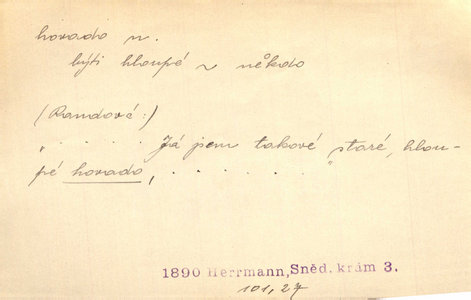 hovado n.
býti hloupé ~ někdo
(Randová:)
„ . . . . . Já jsem takové staré, hlou-
pé hovado, . . . . . . . "
1890 Herrmann, Sněd. krám 3.
101,27